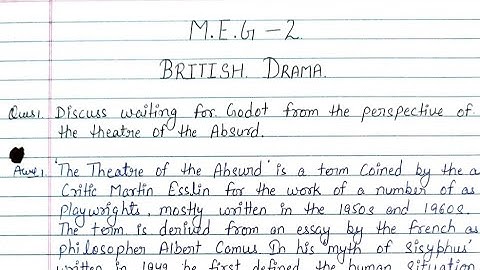 M.E.G-2.
BRITISH DRAMA.
Ques1. Discuss waiting for Godot from the perspective of
the theatre of the Absurd.
Ans1. 'The Theatre of the Absurd' is a term Coined by the a
Critic Martin Esslin for the work of a number of as
playwrights, mostly written in the 1950s and 1960s.
The term is derived from an essay by the French as
philosopher Albert Camus. In his 'myth of Sisyphus'
written in 1942 he first defined the human situation